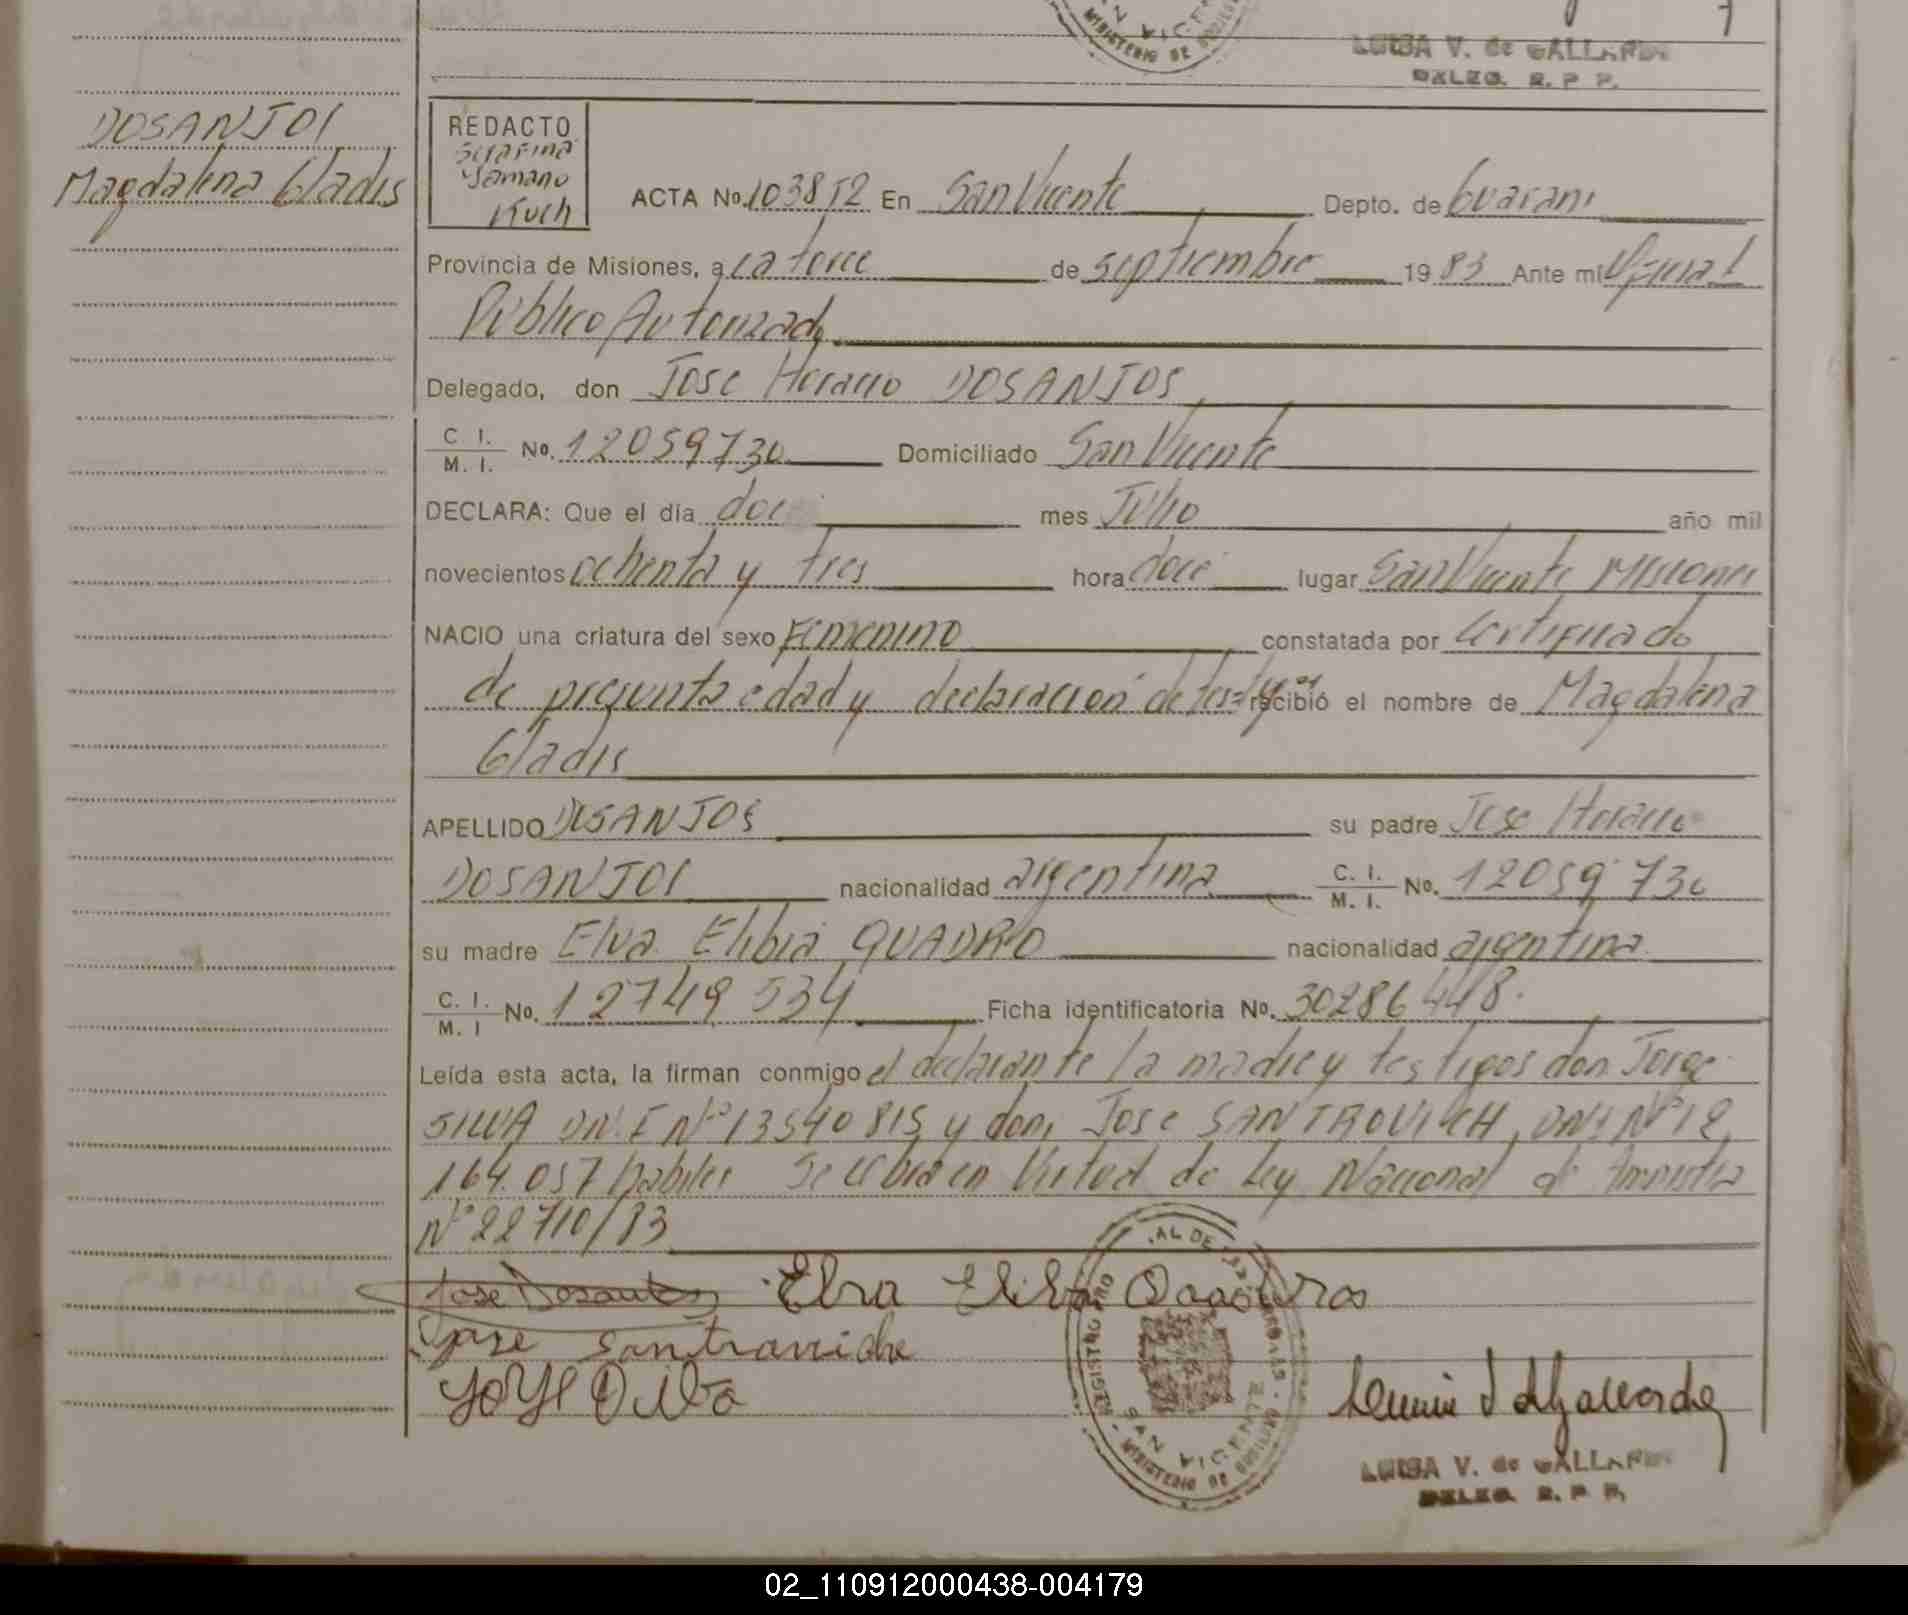 SAN VICENTE
MINISTERIO DE
LUISA V. de GALLARDO
DELEG. R. P. P.
DOSANJOS
Magdalena Gladis
REDACTO
Serafina
Kuch
ACTA No. 103852 En San Vicente Depto. de Guarani
Provincia de Misiones, a catorce de septiembre 1983 Ante mi Oficial
Público Autorizado
Delegado, don Jose Horacio DOSANJOS
C. I. / M. I. No. 12059730 Domiciliado San Vicente
DECLARA: Que el día doce mes Julio año mil
novecientos ochenta y tres hora doce lugar San Vicente Misiones
NACIO una criatura del sexo Femenino constatada por Certificado
de presunta edad y declaración de testigos recibió el nombre de Magdalena
Gladis
APELLIDO DOSANJOS su padre Jose Horacio
DOSANJOS nacionalidad argentina C. I. / M. I. No. 12059730
su madre Elva Elibia QUADRO nacionalidad argentina
C. I. / M. I No. 12749534 Ficha identificatoria No. 30286448.
Leída esta acta, la firman conmigo el declarante la madre y testigos don Jorge
SILVA DNI Nº 13540815 y don Jose SANTROVICH, DNI Nº 18
164.057 habiles Se labra en Virtud de Ley Nacional de Amnistia
Nº 22710/83
Jose Dosantos Elva Elibia Quadros
Jose Santraviche
REGISTRO
SAN VICENTE
MINISTERIO DE
LUISA V. de GALLARDO
DELEG. R. P. P.
02_110912000438-004179